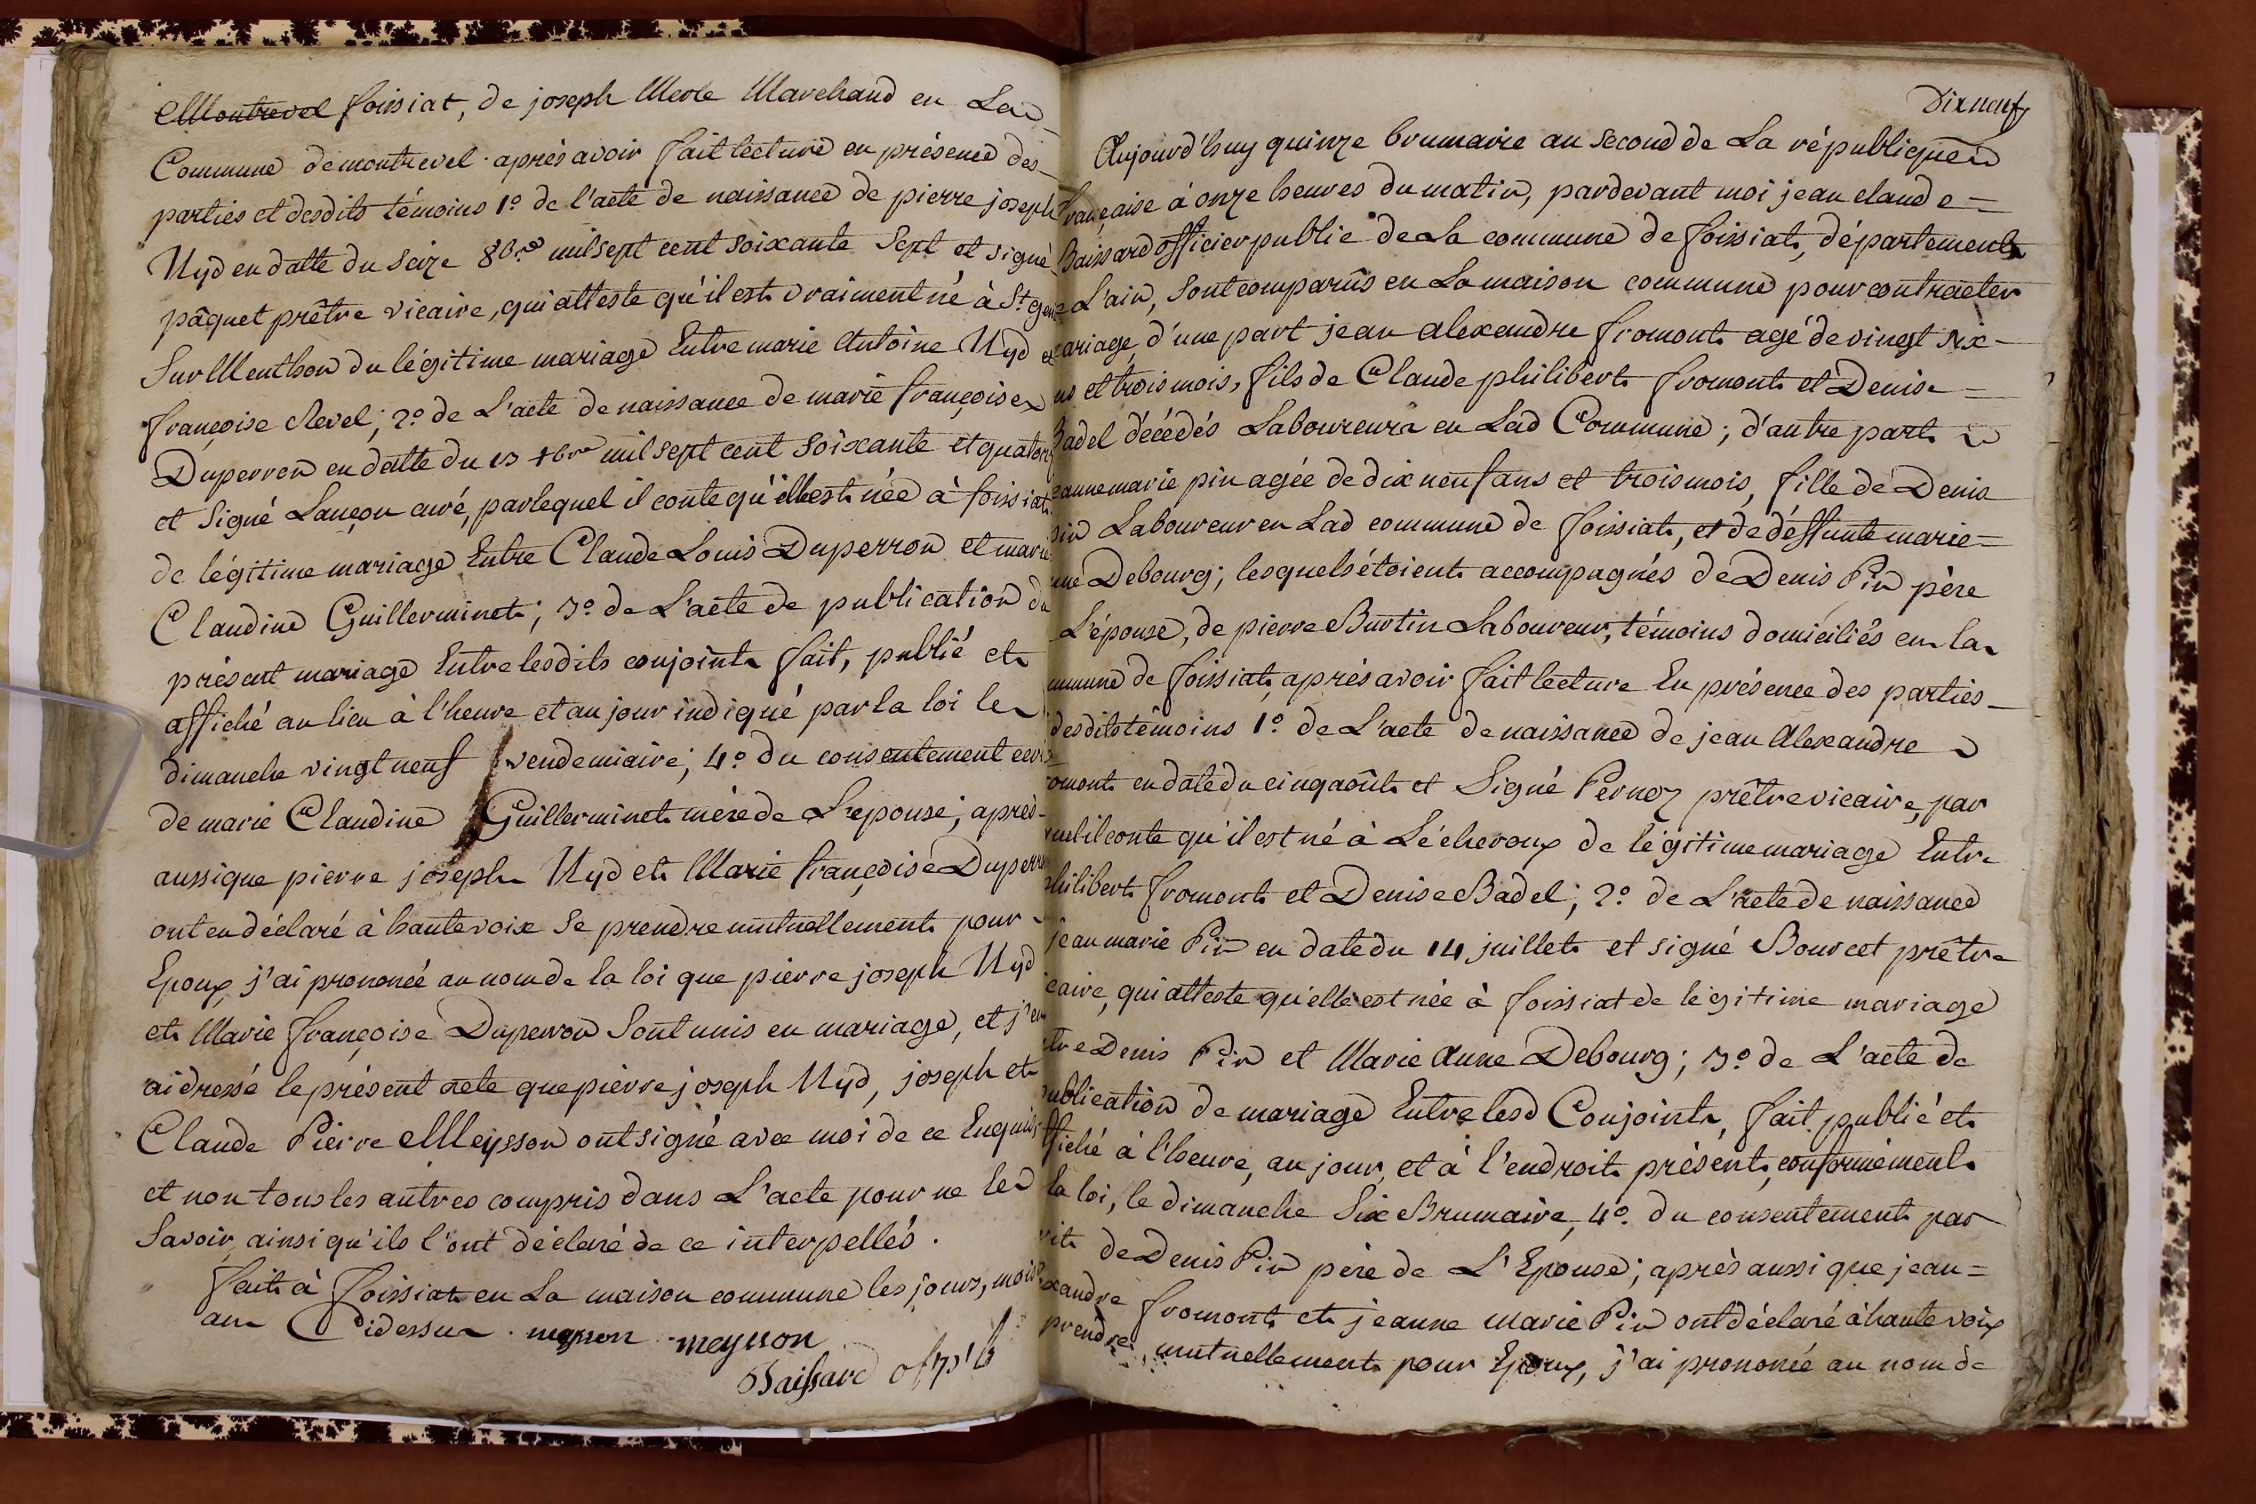 Montrevel foissiat, de joseph Merle Marchand en La
Commune de montrevel. après avoir fait lecture en présence des
parties et desdits témoins 1.º de l'acte de naissance de pierre joseph
Nyd en datte du seize 8bre mil sept cent soixante Sept et signé
pâquet prêtre vicaire, qui atteste qu'il est vraiment né à St. genie
Sur Menthon du légitime mariage Entre marie Antoine Nyd et
françoise Revel; 2.º de L'acte de naissance de marie françoise
Duperron en datte du mil sept cent soixante et quatorz
et Signé Lançon curé, par lequel il conte qu'elle est née à foissiat
de légitime mariage Entre Claude Louis Duperron et marie
Claudine Guillerminet; 3.º de L'acte de publication du
présent mariage Entre lesdits conjoints fait, publié et
affiché au lieu à l'heure et au jour indiqué par la loi le
dimanche vingt neuf vendemiaire; 4.º du consentement
de marie Claudine Guillerminet mère de L'epouse; après
aussi que pierre joseph Nyd et Marie françoise Duperron
ont en déclaré à haute voix Se prendre mutuellement pour
Epoux, j'ai prononcé au nom de la loi que pierre joseph Nyd
et Marie françoise Duperron Sont unis en mariage, et j'en
ai dressé le présent acte que pierre joseph Nyd, joseph et
Claude Pierre Meysson ont signé avec moi de ce Enquis
et non tous les autres compris dans L'acte pour ne le
Savoir, ainsi qu'ils l'ont déclaré de ce interpellés.
fait à foissiat en La maison commune les jours, mois
an Cidessus. meysson
Baissard
Dix neuf
Aujourd'huy quinze brumaire an Second de La république
française à onze heures du matin, pardevant moi jean claude
Baissard officier public de La commune de foissiat, département
de L'ain, Sont comparûs en La maison commune pour contracter
mariage, d'une part jean alexandre fromont agé de vingt six
ans et trois mois, fils de Claude philibert fromont et Denise
Badel décédés Laboureurs en Lad Commune; d'autre part
jeanne marie pin agée de dix neuf ans et trois mois, fille de Denis
pin Laboureur en Lad commune de foissiat, et de déffunte marie
anne Debourg; lesquels étoient accompagnés de Denis Pin père
L'épouse, de pierre Burtin Laboureur, témoins domiciliés en la
commune de foissiat, après avoir fait lecture En présence des parties
desdits témoins 1.º de L'acte de naissance de jean Alexandre
fromont en date du cinq août et Signé Pernoz prêtre vicaire, par
lequel il conte qu'il est né à Lécheroux de légitime mariage Entre
philibert fromont et Denise Badel; 2.º de L'acte de naissance
jean marie Pin en date du 14 juillet et signé Bourcet prêtre
vicaire, qui atteste qu'elle est née à foissiat de légitime mariage
entre Denis Pin et Marie Anne Debourg; 3.º de L'acte de
publication de mariage Entre lesd Conjoints, fait, publié et
affiché à l'heure, au jour, et à l'endroit présent, conformément
la loi, le dimanche Six Brumaire, 4.º du consentement par
écrit de Denis Pin père de L'Epouse; après aussi que jean
alexandre fromont et jeanne marie Pin ont déclaré à haute voix
prendre mutuellement pour Epoux, j'ai prononcé au nom de